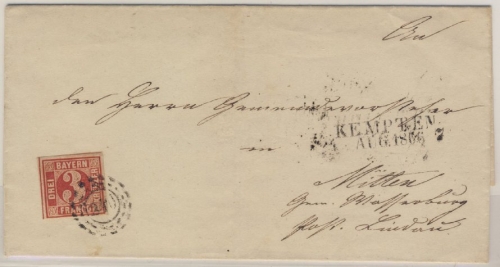 An
den Herrn Gemeindevorsteher
KEMPTEN
AUG. 1866
in
Mitten
Gem. Wasserburg
Post. Lindau.
BAYERN
DREI
3
FRANCO